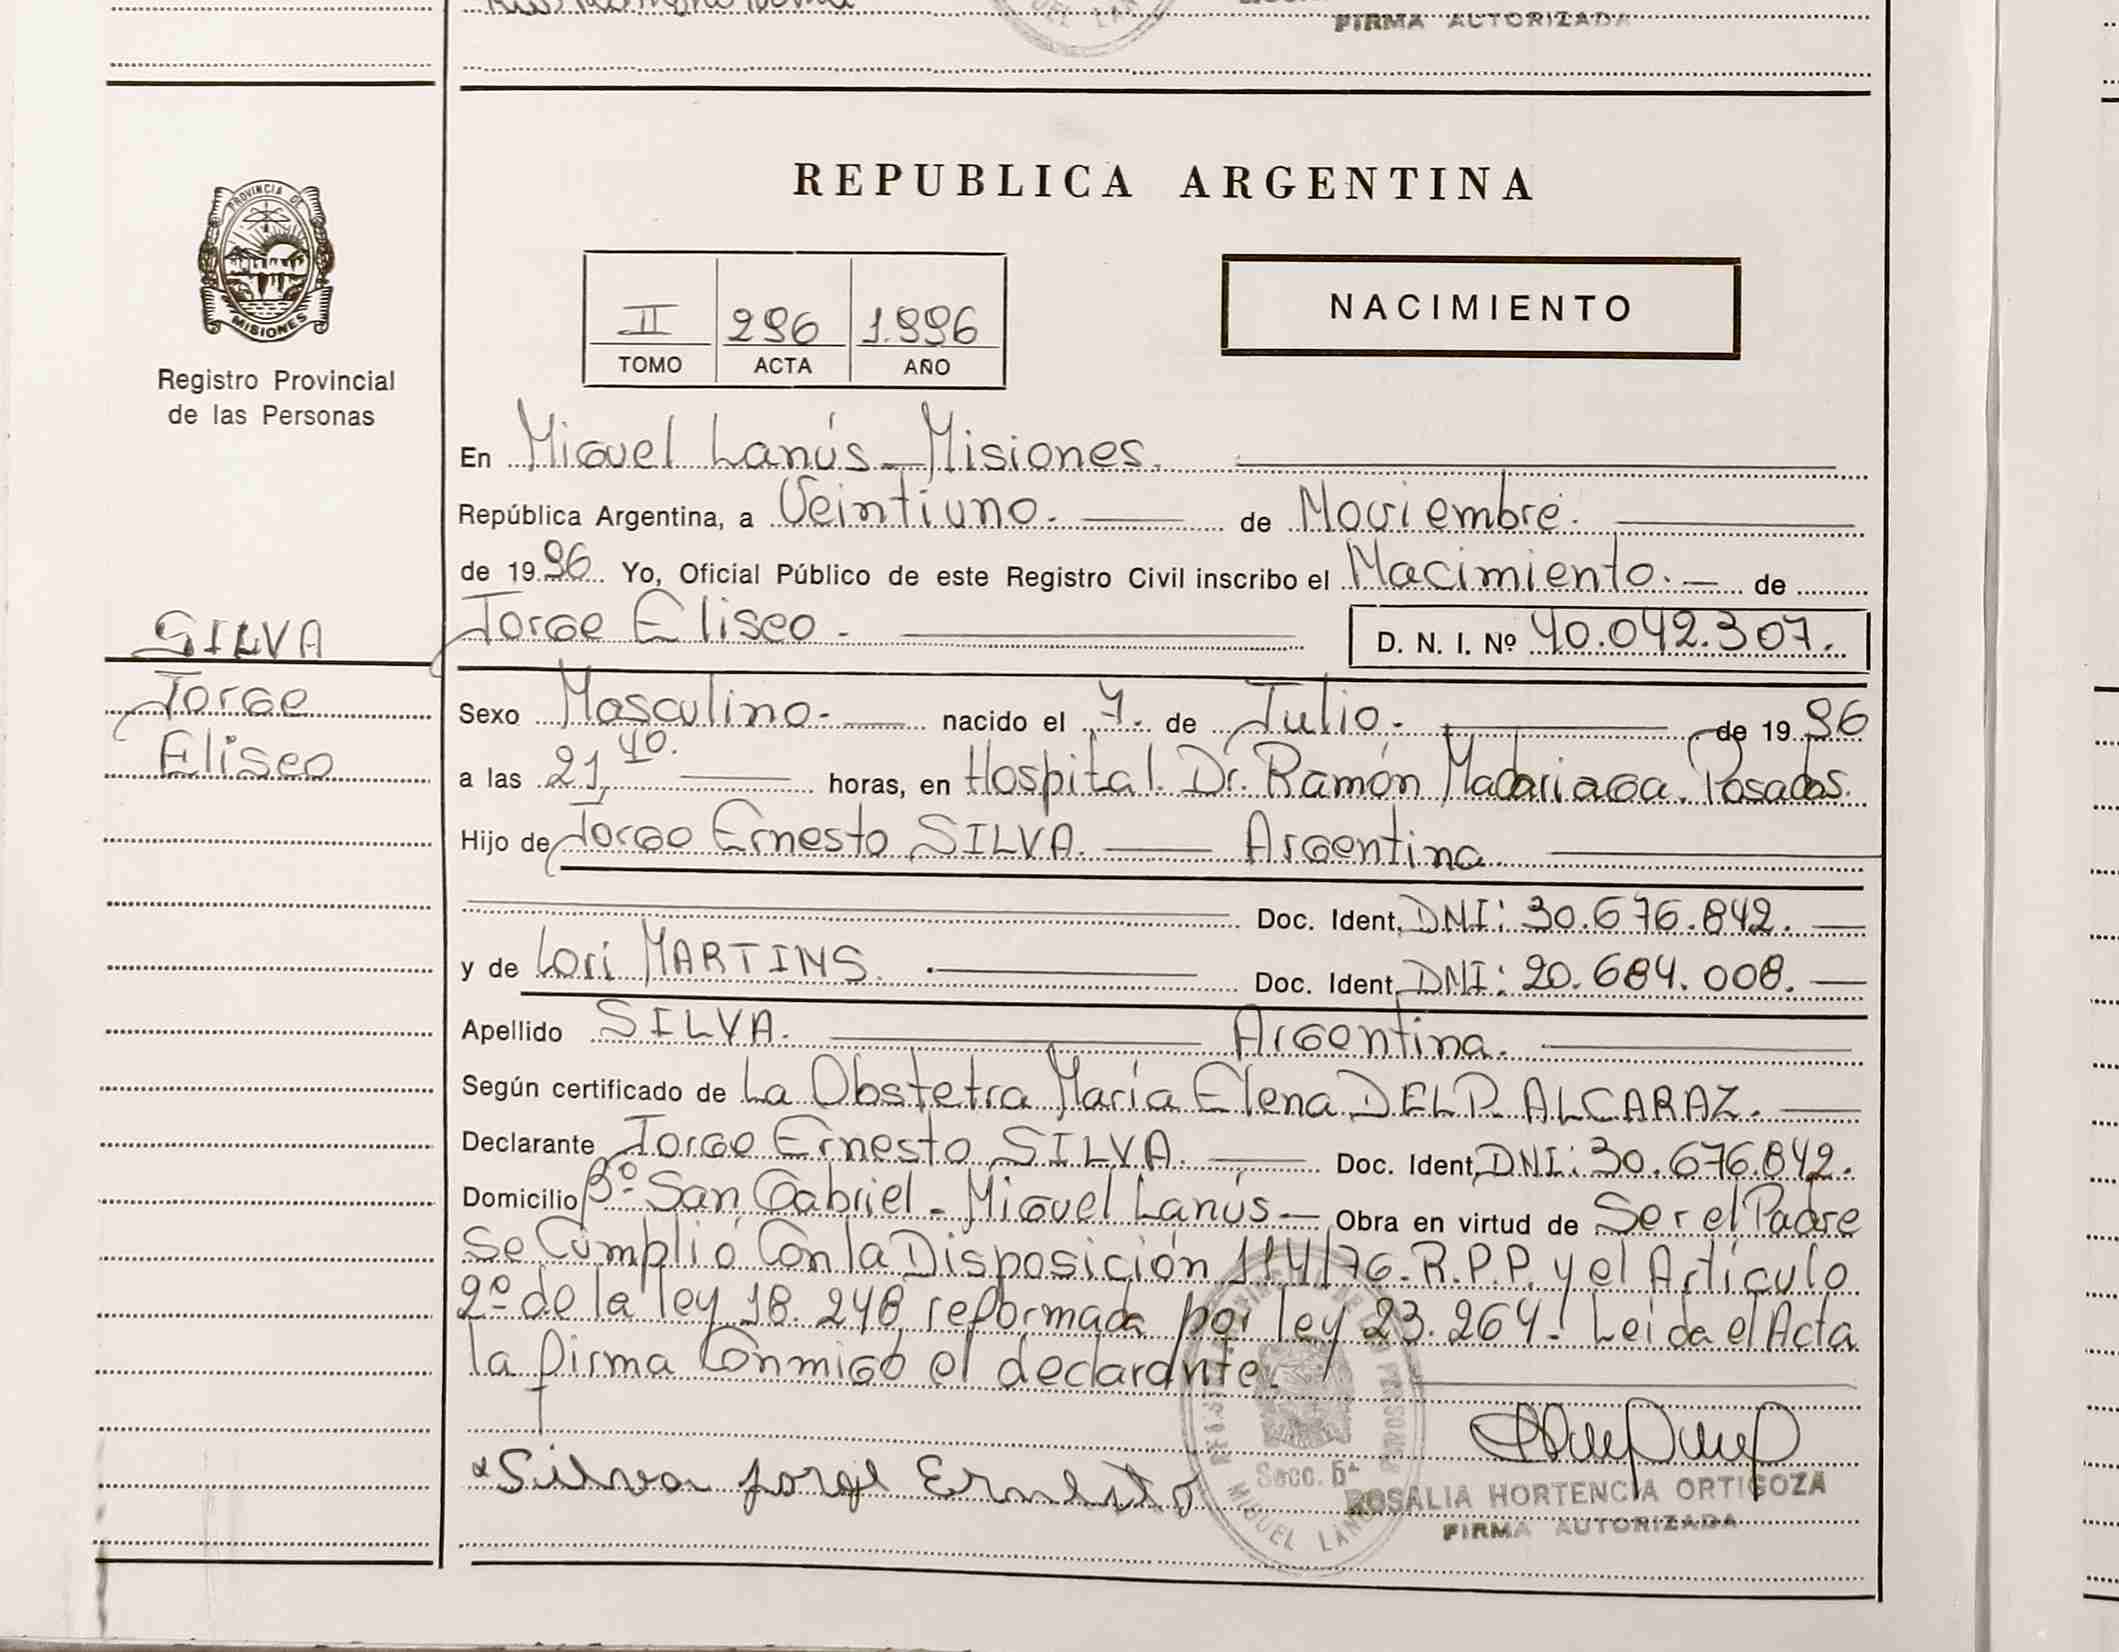 FIRMA AUTORIZADA
PROVINCIA DE
MISIONES
Registro Provincial
de las Personas
SILVA
Jorge
Eliseo
REPUBLICA ARGENTINA
II 296 1.996
TOMO ACTA AÑO
NACIMIENTO
En Miguel Lanús - Misiones.
República Argentina, a Veintiuno. de Noviembre.
de 1996 Yo, Oficial Público de este Registro Civil inscribo el Nacimiento. de
Jorge Eliseo - D. N. I. Nº 40.042.307.
Sexo Masculino. nacido el 7. de Julio. de 1996
a las 21,40. horas, en Hospital Dr. Ramón Madariaga. Posadas.
Hijo de Jorge Ernesto SILVA. Argentina
Doc. Ident. DNI: 30.676.842.
y de Lori MARTINS. Doc. Ident. DNI: 20.684.008.
Apellido SILVA. Argentina.
Según certificado de La Obstetra María Elena DELP. ALCARAZ.
Declarante Jorge Ernesto SILVA. Doc. Ident. DNI: 30.676.842.
Domicilio Bº San Gabriel - Miguel Lanús - Obra en virtud de Ser el Padre
Se Cumplió Con la Disposición 114/76. R.P.P. y el Artículo
2º de la ley 18.248 reformada por ley 23.264. Leida el Acta
la firma Conmigo el declarante.
Silva Jorge Ernesto
Secc. 5ª
MIGUEL LANUS
ROSALIA HORTENCIA ORTIGOZA
FIRMA AUTORIZADA